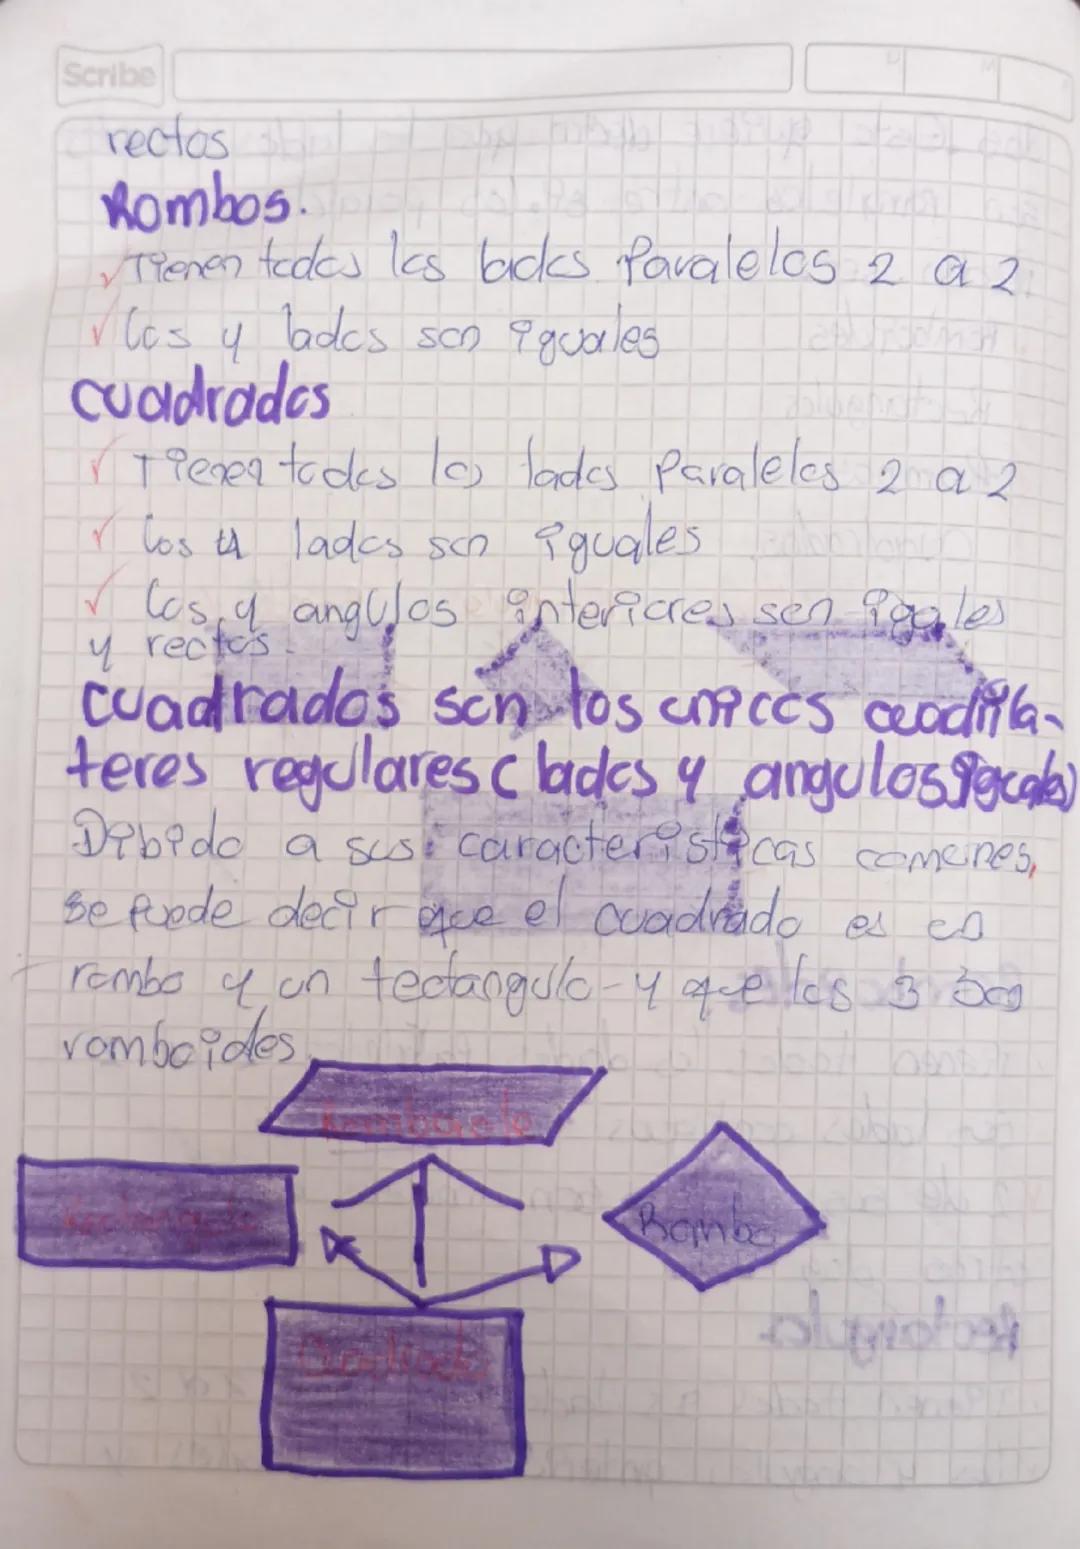 Scribe
rectos
Rombos.
Tienen todos los lados Paralelos 2 a 2.
los 4 lados son iguales
cuadrados
Tienen todos los lados Paralelos 2 a 2
los 4 lados son iguales
los 4 angulos interiores son igales
y rectos.
cuadrados son los unicos cuadrila-
teros regulares ( lados y angulos iguales)
Dibido a sus caracteristicas comunes,
se puede decir que el cuadrado es un
rombo y un rectangulo - y que los 3 son
romboides
Romboide
Rectangulo
Rombo
Cuadrado